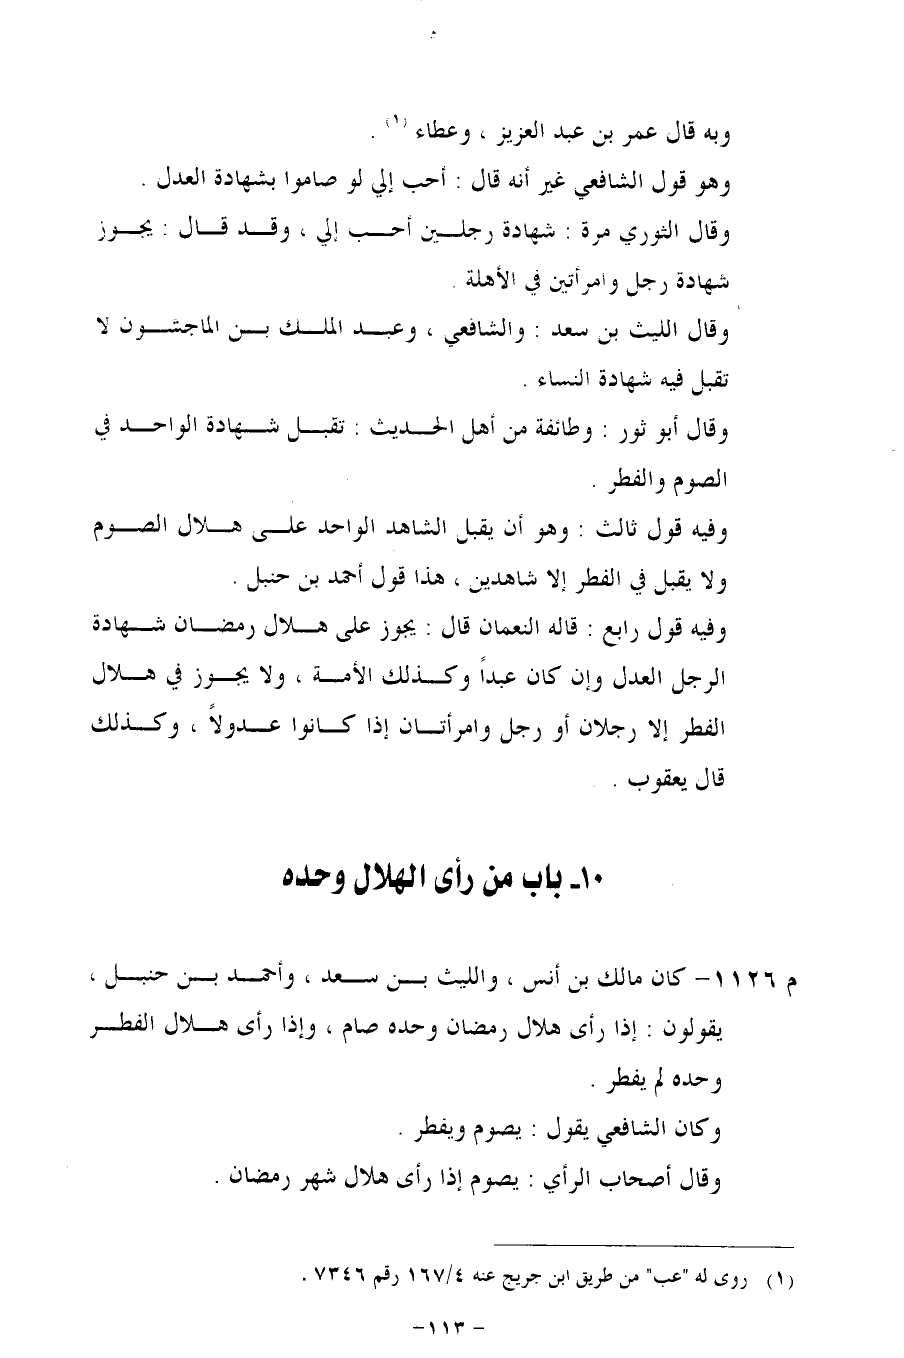 وبه قال عمر بن عبد العزيز ، وعطاء (١) .
وهو قول الشافعي غير أنه قال : أحب إلي لو صاموا بشهادة العدل .
وقال الثوري مرة : شهادة رجلين أحب إلي ، وقد قال : يجوز
شهادة رجل وامرأتين في الأهلة .
وقال الليث بن سعد : والشافعي ، وعبد الملك بن الماجشون لا
تقبل فيه شهادة النساء .
وقال أبو ثور : وطائفة من أهل الحديث : تقبل شهادة الواحد في
الصوم والفطر .
وفيه قول ثالث : وهو أن يقبل الشاهد الواحد على هلال الصوم
ولا يقبل في الفطر إلا شاهدين ، هذا قول أحمد بن حنبل .
وفيه قول رابع : قاله النعمان قال : يجوز على هلال رمضان شهادة
الرجل العدل وإن كان عبداً وكذلك الأمة ، ولا يجوز في هلال
الفطر إلا رجلان أو رجل وامرأتان إذا كانوا عدولاً ، وكذلك
قال يعقوب .
١٠ـ باب من رأى الهلال وحده
م ١١٢٦– كان مالك بن أنس ، والليث بن سعد ، وأحمد بن حنبل ،
يقولون : إذا رأى هلال رمضان وحده صام ، وإذا رأى هلال الفطر
وحده لم يفطر .
وكان الشافعي يقول : يصوم ويفطر .
وقال أصحاب الرأي : يصوم إذا رأى هلال شهر رمضان .
(١) روى له "عب" من طريق ابن جريج عنه ١٦٧/٤ رقم ٧٣٤٦ .
- ١١٣–